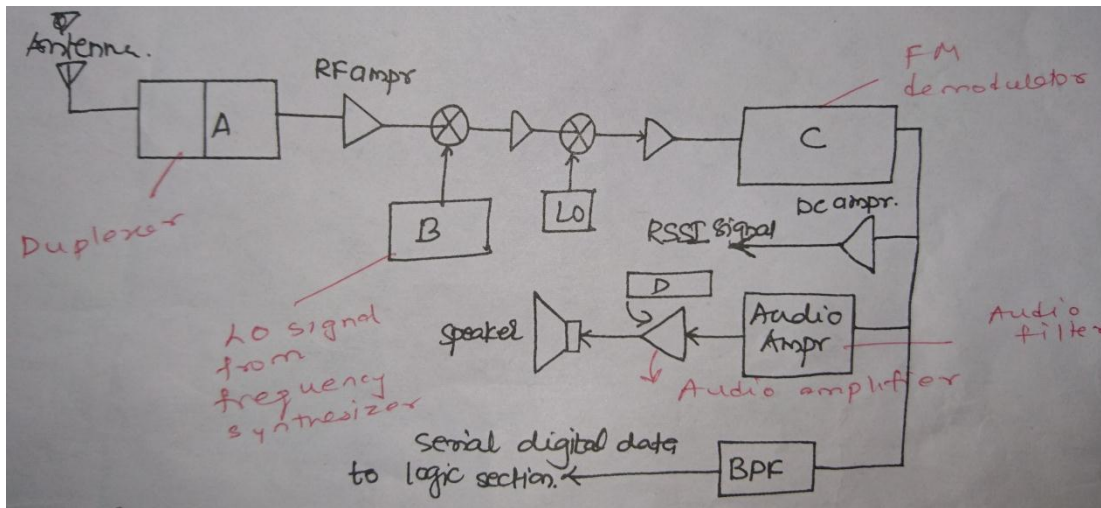 Antenna.
RF ampr
FM
demodulator
A
C
B
LO
DC ampr.
RSSI signal
Duplexer
D
LO signal
from
frequency
synthesizer
speaker
Audio
Ampr
Audio
filter
Audio amplifier
serial digital data
to logic section.
BPF